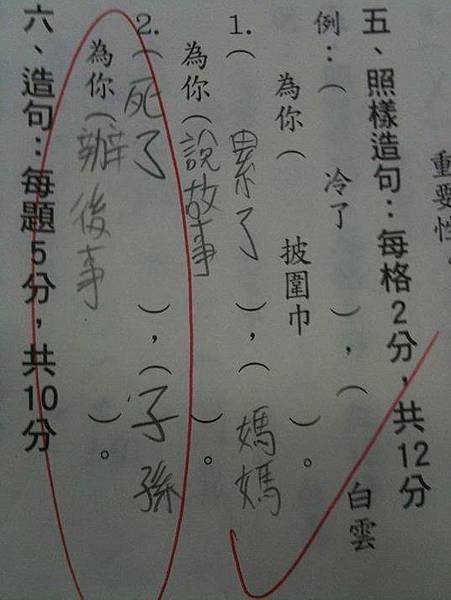 重要性。
五、照樣造句：每格2分，共12分
例：（ 冷了 ），（ 白雲
為你（ 披圍巾 ）。
1.（ 累了 ），（ 媽媽
為你（說故事 ）。
2.（死了 ），（子孫
為你（辦後事 ）。
六、造句：每題5分，共10分